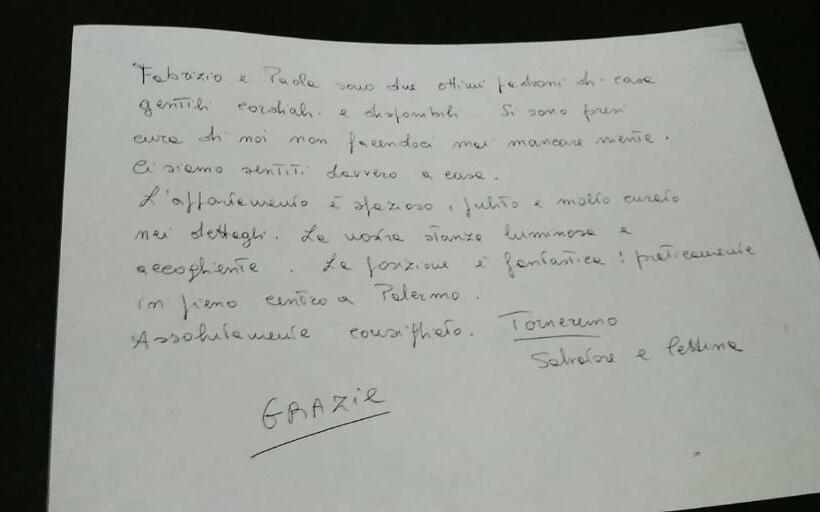 Fabrizio e Paola sono due ottimi padroni di casa
gentili cordiali e disponibili. Si sono presi
cura di noi non facendoci mai mancare niente.
Ci siamo sentiti davvero a casa.
L'appartamento è spazioso, pulito e molto curato
nei dettagli. La nostra stanza luminosa e
accogliente. La posizione è fantastica: praticamente
in pieno centro a Palermo.
Assolutamente consigliato. Torneremo
Salvatore e Pettina
GRAZIE